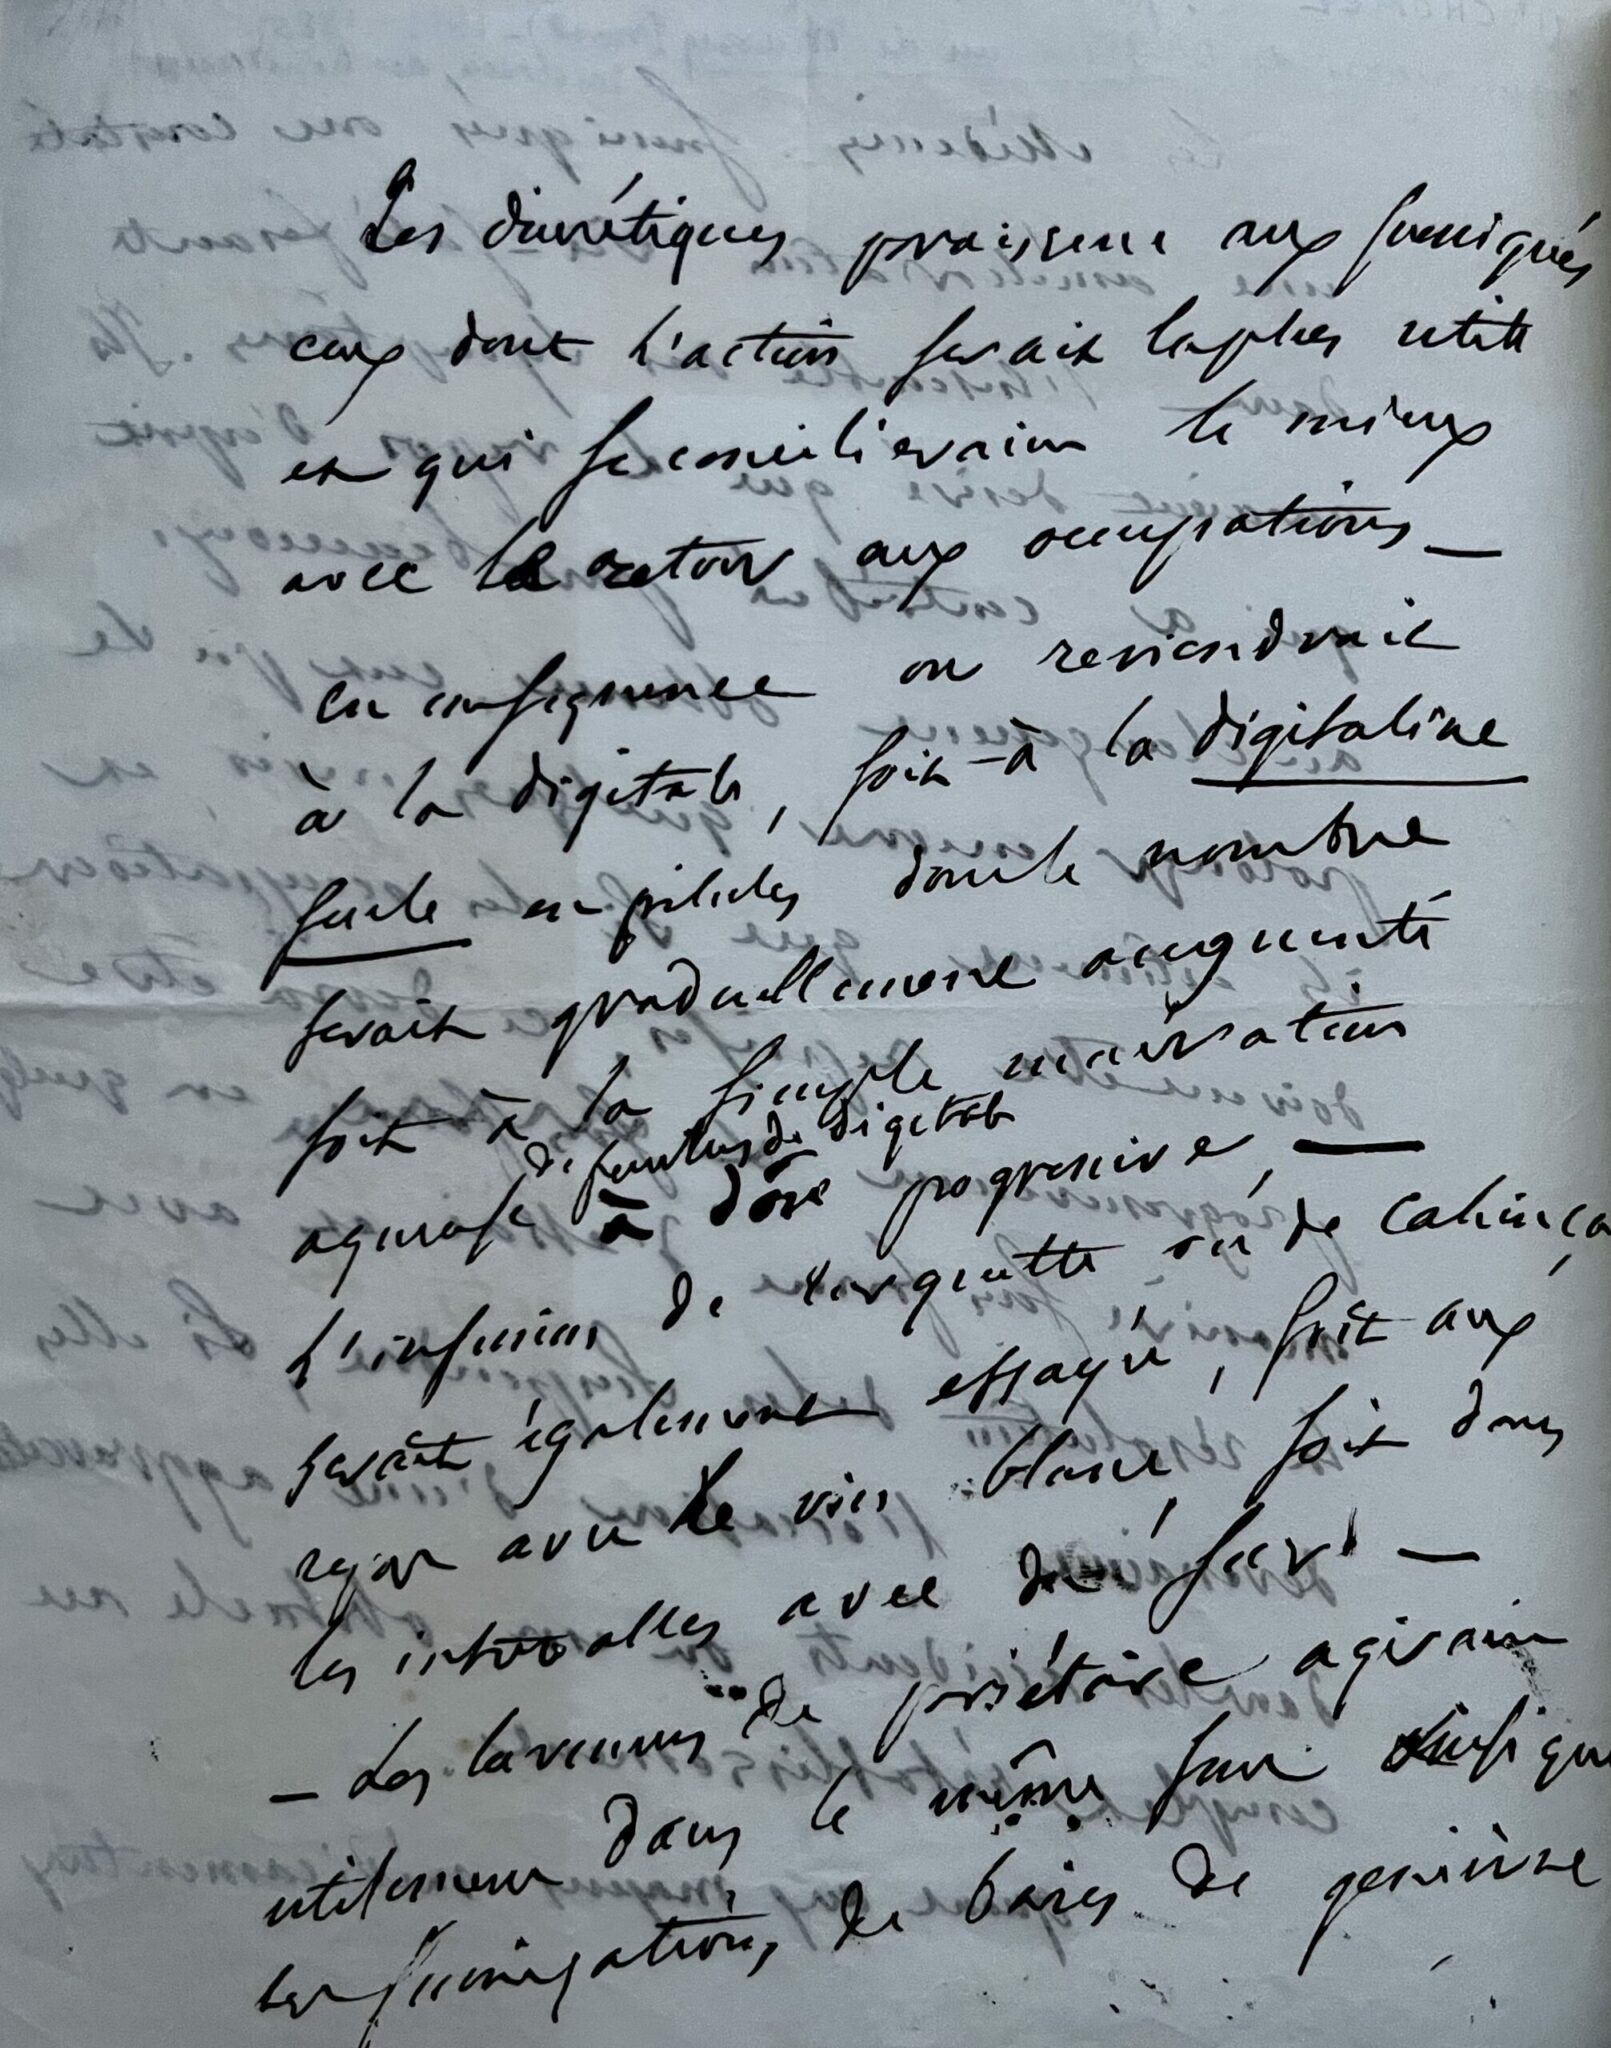 Les diurétiques paraissent aux soussignés
ceux dont l'action serait la plus utile
et qui se concilieraient le mieux
avec le retour aux occupations —
en conséquence on reviendrait
à la digitale, soit à la digitaline
seule en pilules dont le nombre
serait graduellement augmenté
soit à la simple macération
de feuilles de digitale
aqueuse à dose progressive, —
L'infusion de turquette ou de Cahinça
serait également essayée, soit aux
repas avec le vin blanc, soit dans
les intervalles avec du —
— Les lavements de pariétaire agiraient
utilement dans le même sens ainsi que
les fumigations de baies de genièvre